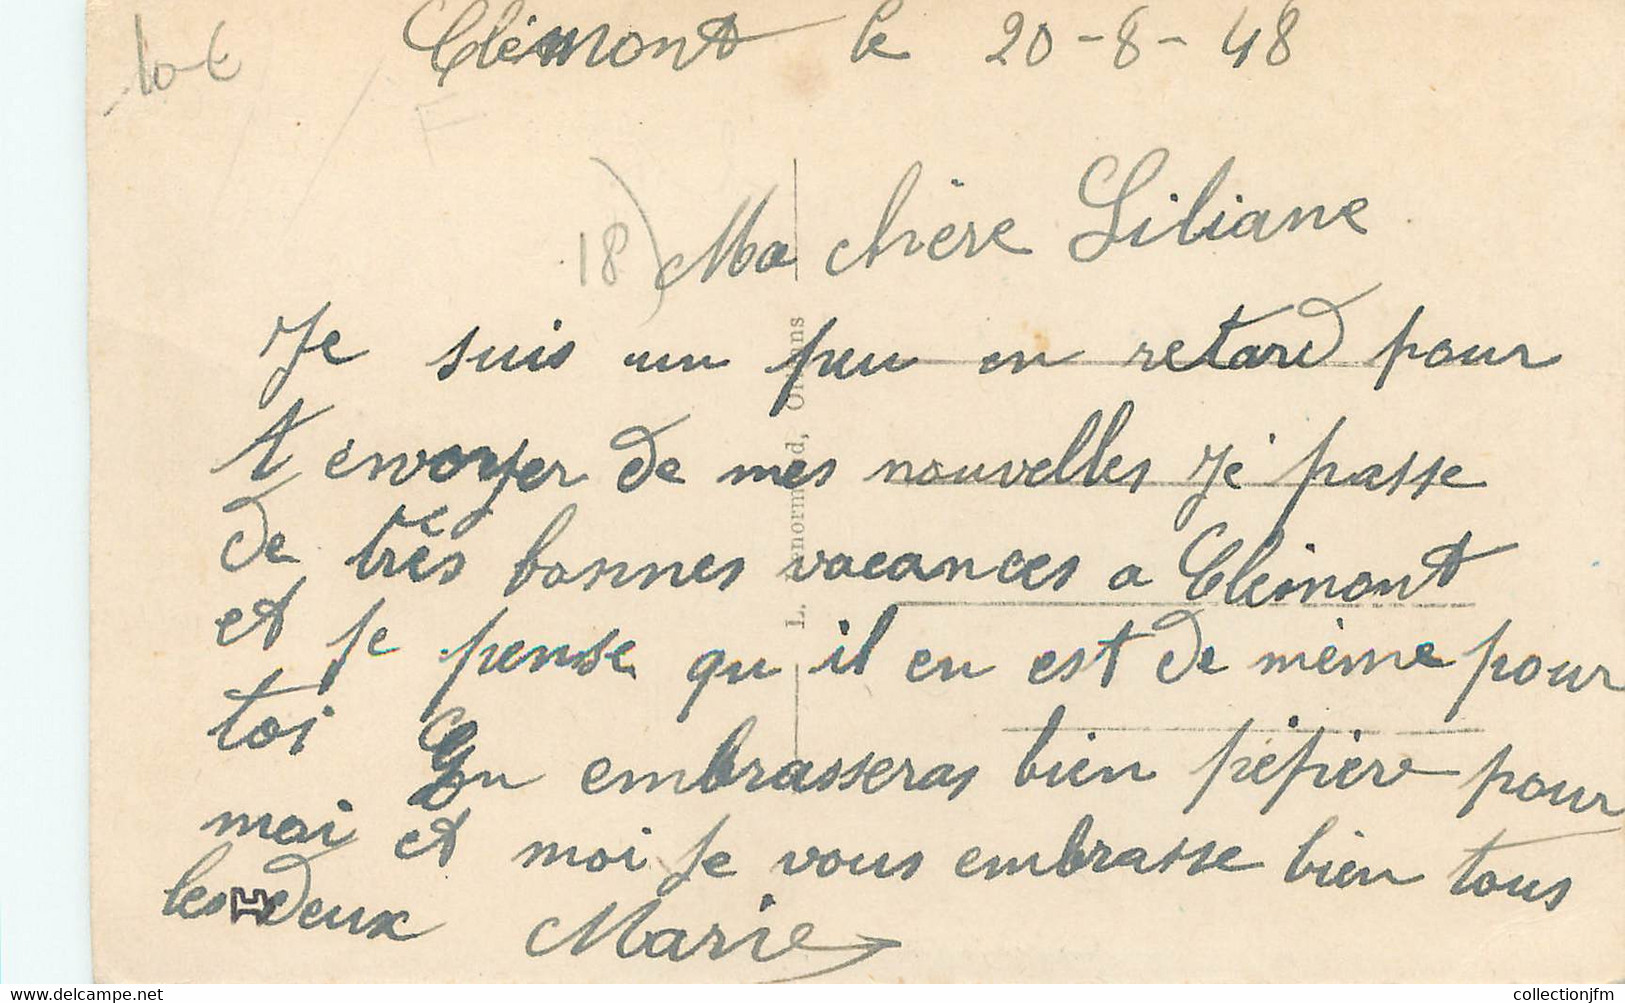 10 €
Clémont le 20-8-48
F
18)
Ma chère Liliane
Je suis un peu en retard pour
t envoyer de mes nouvelles Je passe
de très bonnes vacances a Clémont
et je pense qu il en est de même pour
toi Tu embrasseras bien pépère pour
moi et moi Je vous embrasse bien tous
les deux Marie
L. Lenormand, Orléans
www.delcampe.net
collectionjfm